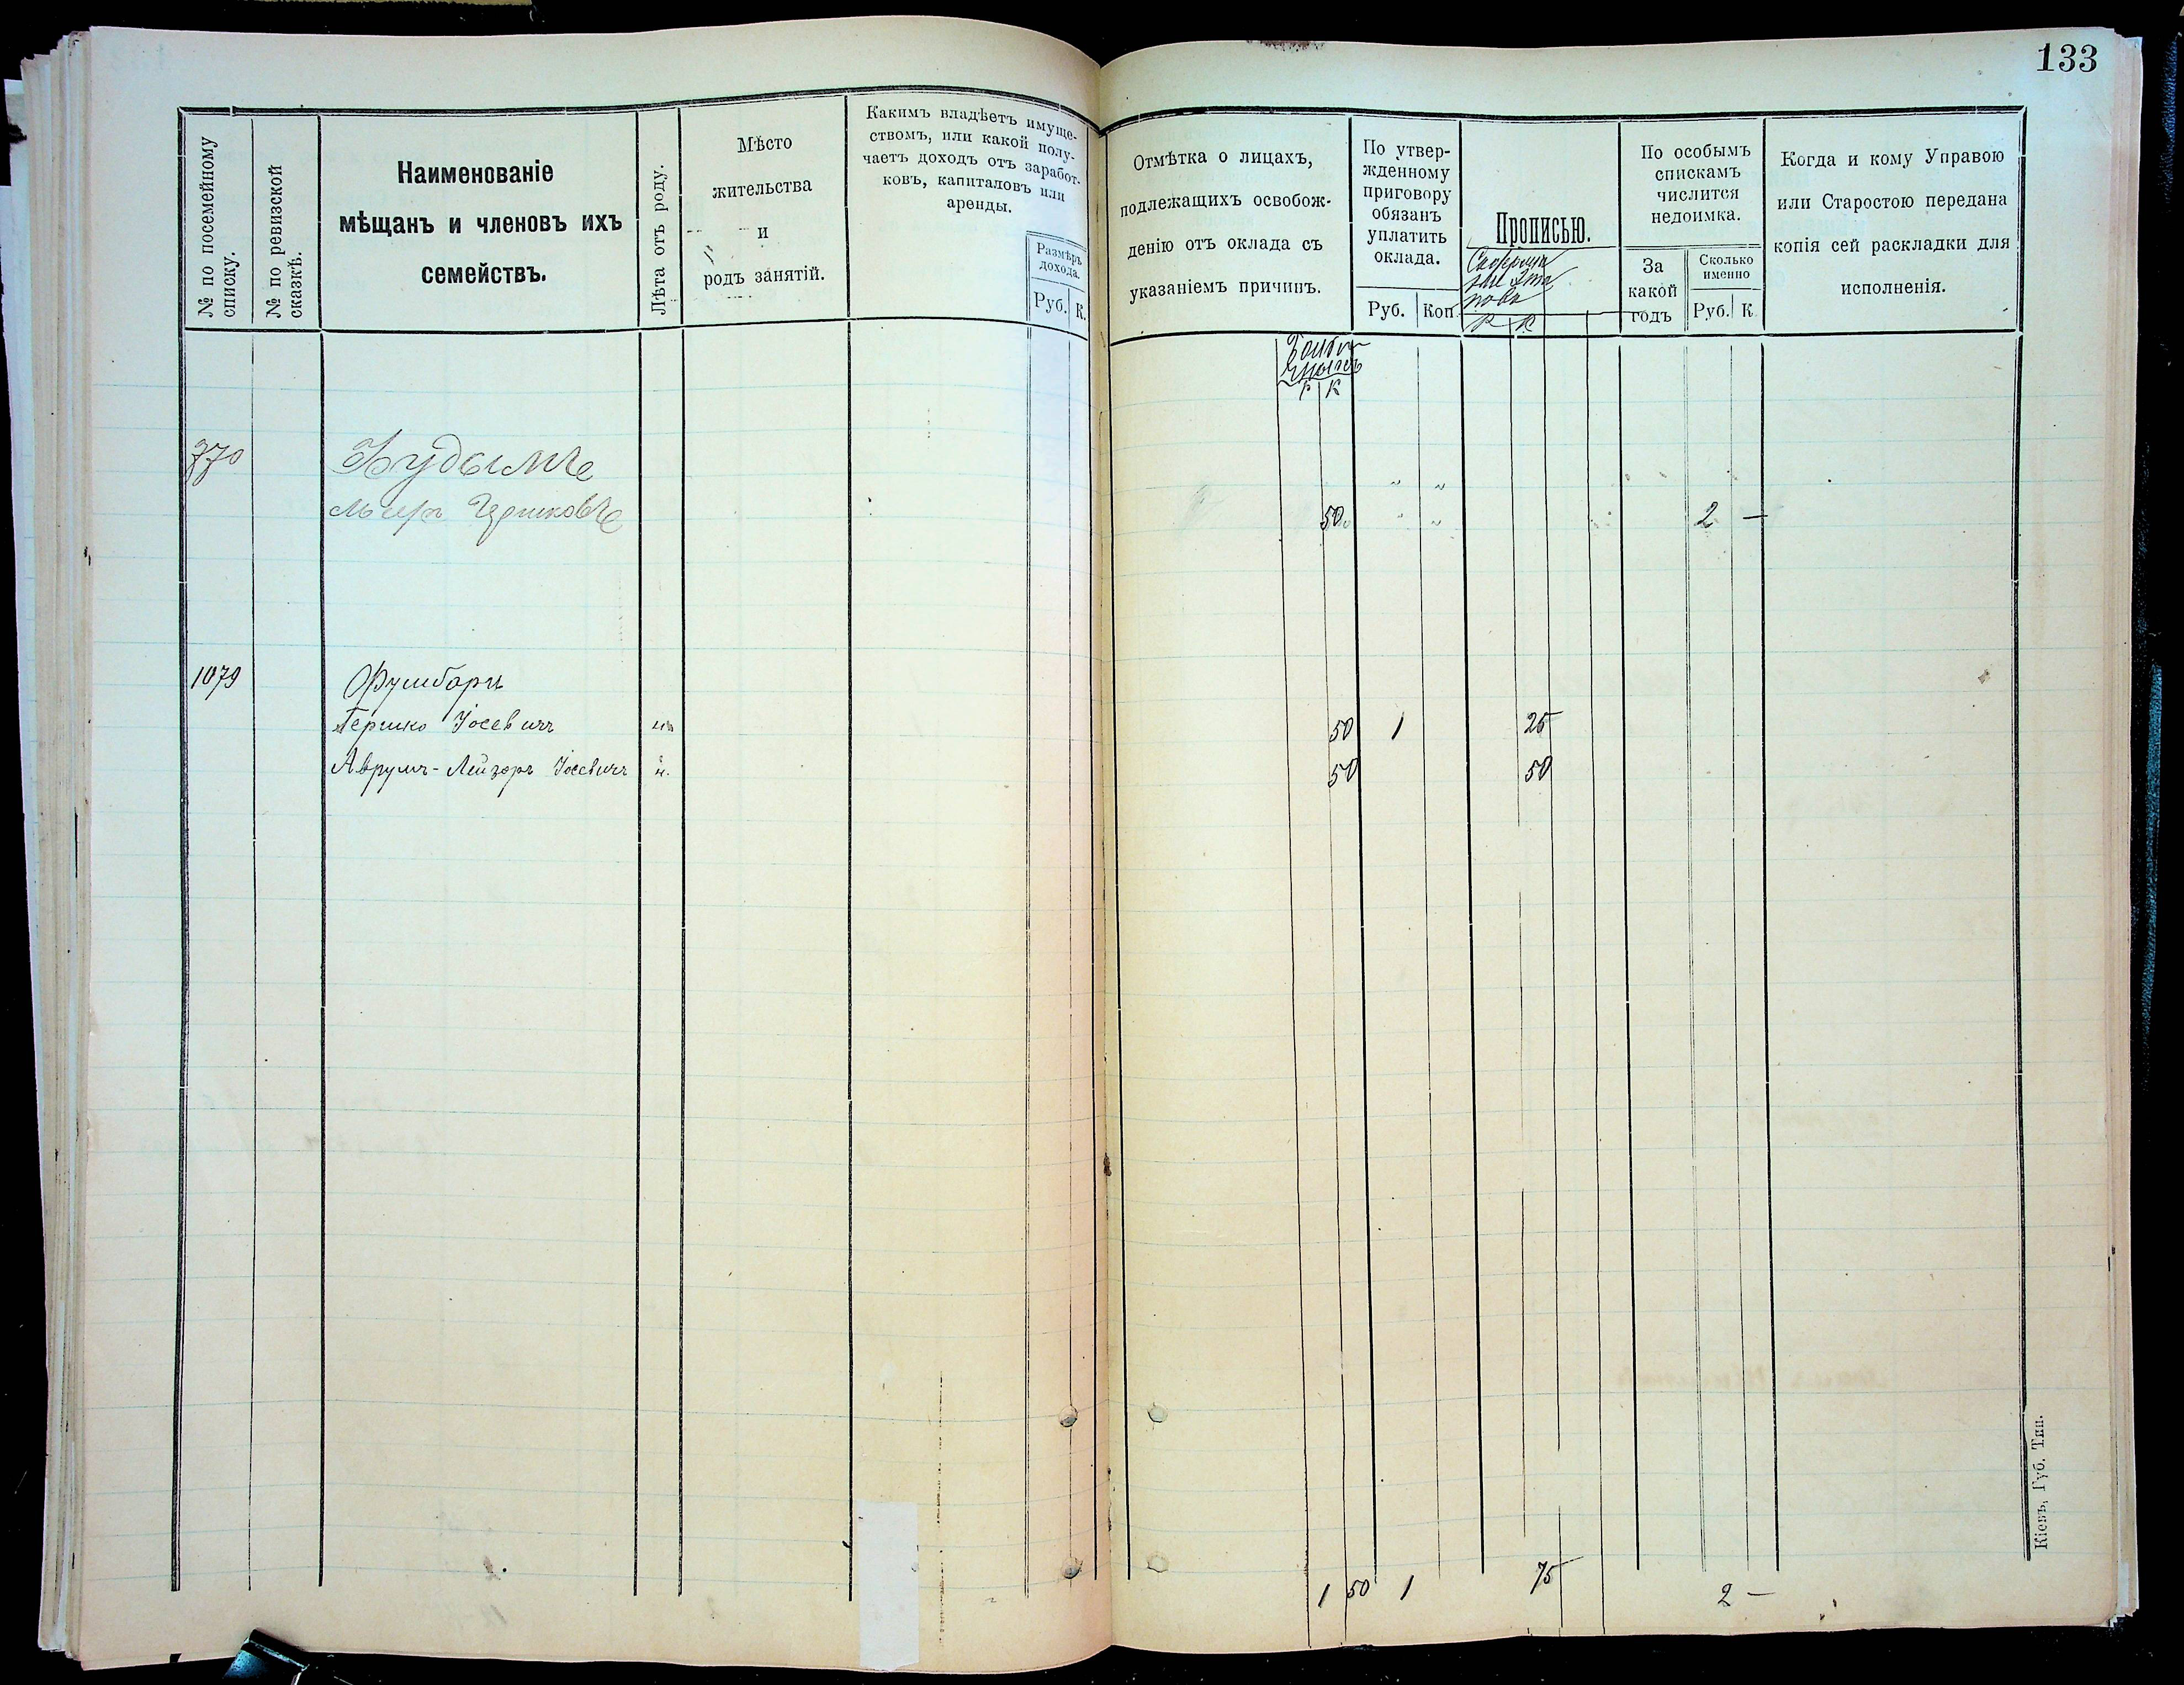 133
№ по посемейному
списку.
№ по ревизской
сказкѣ.
Наименованіе
мѣщанъ и членовъ ихъ
семействъ.
Лѣта отъ роду.
Мѣсто
жительства
и
родъ занятій.
Какимъ владѣетъ имуще-
ствомъ, или какой полу-
чаетъ доходъ отъ заработ-
ковъ, капиталовъ или
аренды.
Размѣръ
дохода.
Руб. К.
Отмѣтка о лицахъ,
подлежащихъ освобож-
денію отъ оклада съ
указаніемъ причинъ.
По утвер-
жденному
приговору
обязанъ
уплатить
оклада.
Руб. Коп.
Прописью.
Р К
По особымъ
спискамъ
числится
недоимка.
За
какой
годъ
Сколько
именно
Руб. К
Когда и кому Управою
или Старостою передана
копія сей раскладки для
исполненія.
Р К
770
" "
50 " " 2 —
1079
Гершко Іосевичъ 50 1 25
Аврумъ-Лейзоръ Іосевичъ 50 50
1 50 1 75 2 —
Кіевъ, Губ. Тип.